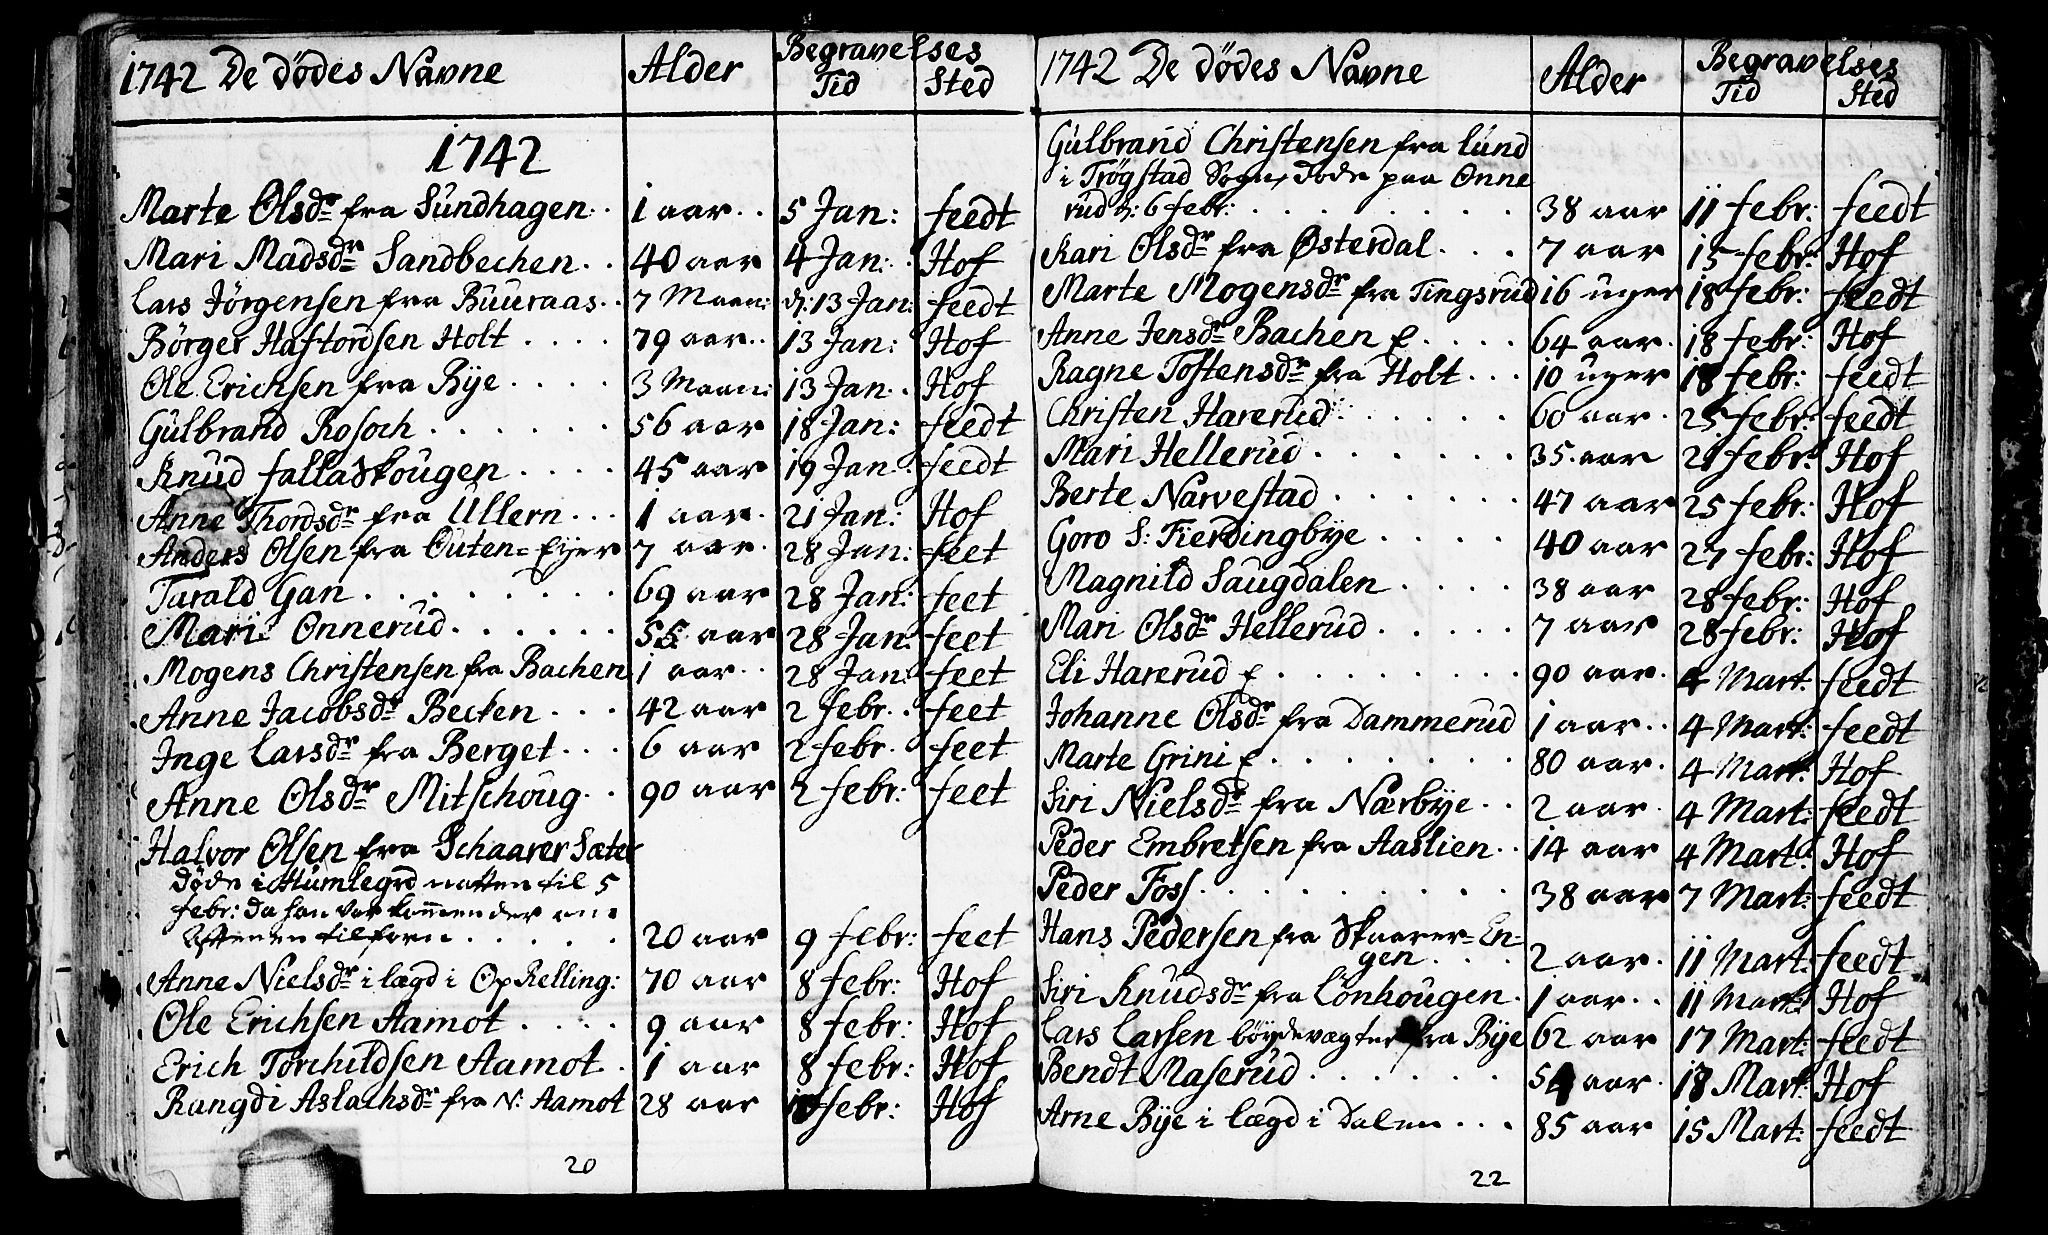 1742 De dødes Navne Alder Begravelses Tid Sted
1742
Marte Olsdr fra Sundhagen: . 1 aar . . 5 Jan: feedt
Mari Madsdr Sandbechen . . 40 aar 4 Jan: . Hof
Lars Jörgensen fra Buuraas . . 7 Maan: d: 13 Jan: feedt
Börger Haftordsen Holt . . . . 79 aar . . 13 Jan: Hof
Ole Erichsen fra Bÿe . . . . 3 Maan: 13 Jan . Hof
Gulbrand Rosoch . . . . . . 56 aar 18 Jan: feedt
Knud fallaskougen . . . . 45 aar 19 Jan . feedt
Anne Thordsdr fra Ullern . . . 1 aar . 21 Jan: Hof
Anders Olsen fra Outen=Eÿer 7 aar . 28 Jan: feet
Tarald Gan . . . . . . . . 69 aar 28 Jan: feet
Mari Onnerud . . . . . . 55 aar 28 Jan: feet
Mogens Christensen fra Bachen 1 aar . . 28 Jan: feet
Anne Jacobsdr Becken . . . 42 aar 2 febr . . feet
Inge Larsdr fra Berget . . . 6 aar 2 febr . feet
Anne Olsdr Mitschoug . . 90 aar 2 febr: feet
Halvor Olsen fra Schaarer Sæter
döde i Humlegrd natten til 5
febr: da han var kommen der om
Aftenen tilforn . . . . . 20 aar 9 febr: feet
Anne Nielsdr i lægd i OpRelling: 70 aar 8 febr: Hof
Ole Erichsen Aamot . . . . 9 aar 8 febr: Hof
Erich Torchildsen Aamot . 1 aar 8 febr: Hof
Rangdi Aslachsdr fra N: Aamot 28 aar febr: Hof
20
1742 De dødes Navne Alder Begravelses Tid Sted
Gulbrand Christensen fra Lund
i Trögstad Sogn, döde paa Onne
rud d: 6 febr: . . . . . . . . . 38 aar 11 febr: feedt
Kari Olsdr fra Østerdal . . . 7 aar 15 febr: Hof
Marte Mogensdr fra Tingsrud 16 uger 18 febr: feedt
Anne Jensdr Bachen E . . . . 64 aar . 18 febr: Hof
Ragne Tostensdr fra Holt . . . 10 uger 18 febr: feedt
Christen Harerud . . . . . . 60 aar . 25 febr: feedt
Mari Hellerud . . . . . . . 35 . aar 21 febr: Hof
Berte Narvestad . . . . . . 47 aar 25 febr: Hof
Goro S: Fierdingbÿe . . . . 40 aar 27 febr: Hof
Magnild Saugdalen . . . . 38 aar 28 febr: Hof
Mari Olsdr Hellerud . . . . . 7 aar 28 febr: Hof
Eli Harerud E . . . . . . . . . 90 aar . 4 Mart . feedt
Johanne Olsdr fra Dammerud 1 aar . . 4 Mart: feedt
Marte Grini E . . . . . . . . 80 aar . 4 Mart . Hof
Siri Nielsdr fra Nærbÿe . . 2 aar . 4 Mart: feedt
Peder Embretsen fra Aaslien . . 14 aar 4 Mart . Hof
Peder Foss . . . . . . . . . . 38 aar 7 Mart: feedt
Hans Pedersen fra Skaarer=En=
gen . . . 2 aar . 11 Mart: feedt
Siri Knudsdr fra Lonhougen . 1 aar . . 11 Mart: Hof
Lars Larsen böÿdevægter fra Bÿe 62 aar 17 Mart: feedt
Bendt Naserud . . . . . . 54 aar . 18 Mart: Hof
Arne Bÿe i lægd i Dalen . . . 85 aar 15 Mart: feedt
22